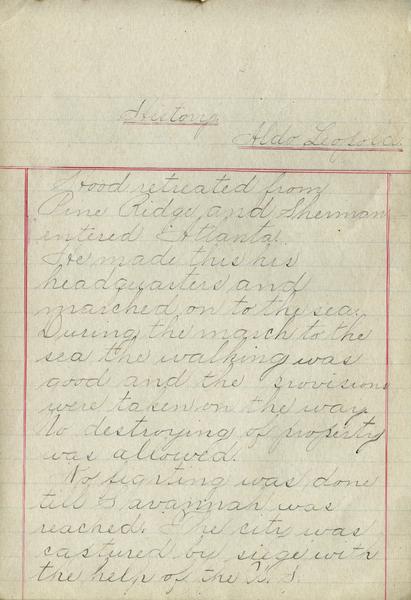 History
Aldo Leopold.
Hood retreated from
Pine Ridge, and Sherman
entered Atlanta.
He made this his
headquarters and
marched on to the sea.
During the march to the
sea the walking was
good and the provisions
were taken on the way.
No destroying of property
was allowed.
No fighting was done
till Savannah was
reached. The city was
captured by siege with
the help of the U. S.